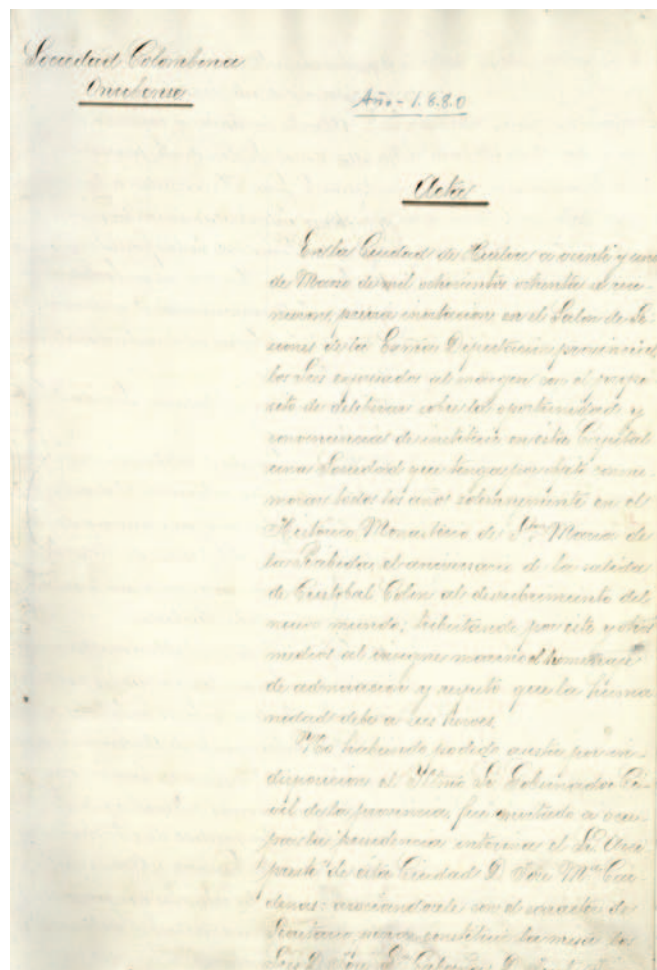 Sociedad Colombina
Onubense
Año - 1.8.8.0
Acta
En la Ciudad de Huelva a veinte y uno
de Marzo de mil ochocientos ochenta se reu-
nieron, previa invitacion, en el Salon de Se-
siones de la Excma Diputacion provincial
los Sres expresados al margen con el propo-
sito de deliberar sobre la oportunidad y
conveniencia de instituir en esta Capital
una Sociedad que tenga por objeto conme-
morar todos los años solemnemente en el
Histórico Monasterio de Sta Maria de
la Rabida, el aniversario de la salida
de Cristobal Colon al descubrimiento del
nuevo mundo; tributando por este y otros
medios al insigne marino el homenaje
de admiracion y respeto que la huma
nidad debe a sus heroes.
No habiendo podido asistir por in-
disposicion el Iltmo Sr Gobernador Ci-
vil de la provincia, fue invitado a ocu-
par la presidencia interina el Sr Arci
preste de esta Ciudad D. José Mª Ca-
denas: asociandosele con el caracter de
Secretario para constituir la mesa los
Sres D. José